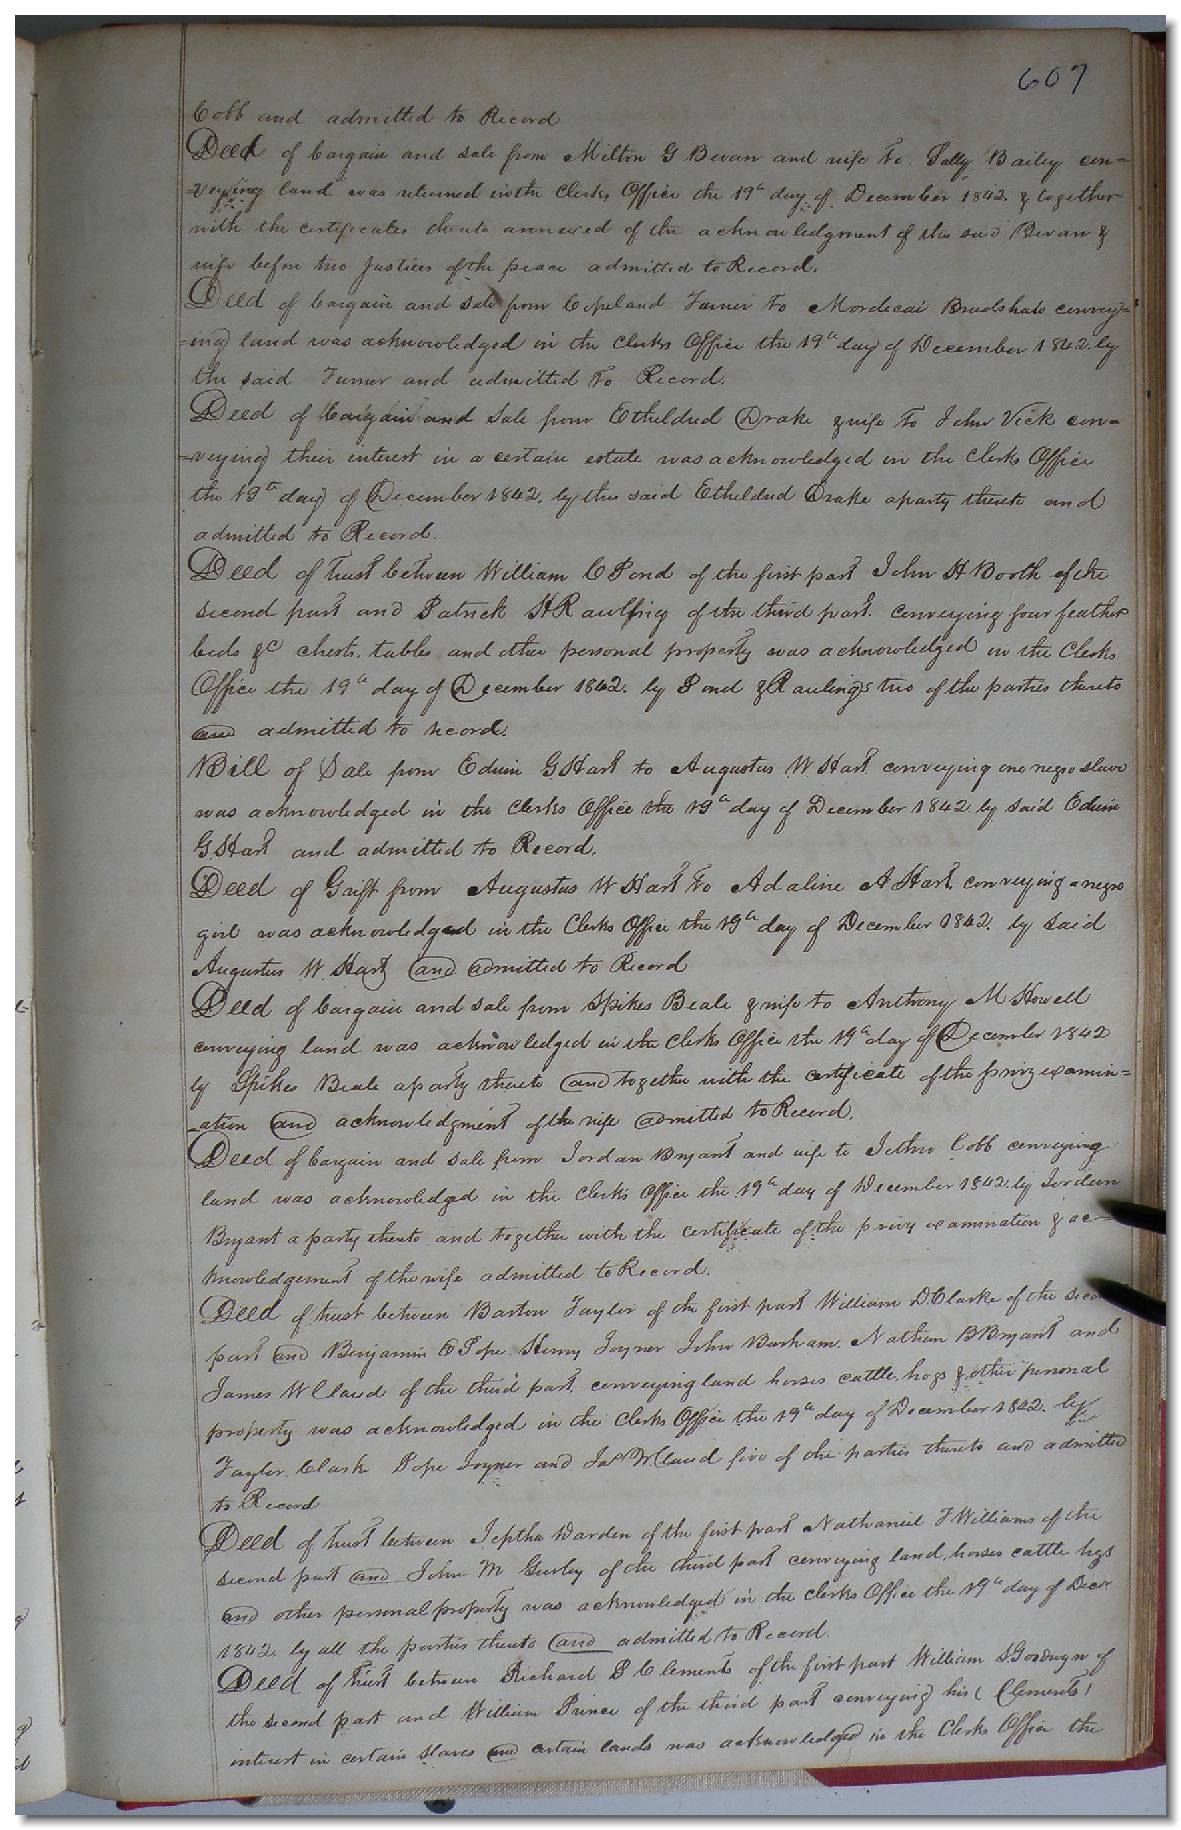 607
Cobb and admitted to Record
Deed of bargain and sale from Milton G Bevan and wife to Sally Bailey con=
=veying land was returned in the Clerks Office the 19th day of December 1842. & together
with the certificates thereto annexed of the acknowledgment of the said Bevan &
wife before two Justices of the peace admitted to Record.
Deed of bargain and sale from Copeland Turner to Mordecai Bradshaw convey=
=ing land was acknowledged in the Clerks Office the 19th day of December 1842. by
the said Turner and admitted to Record.
Deed of bargain and sale from Etheldred Drake & wife to John Vick con=
=veying their interest in a certain estate was acknowledged in the Clerks Office
the 19th day of December 1842. by the said Etheldred Drake a party thereto and
admitted to Record.
Deed of trust between William C Pond of the first part John H Booth of the
second part and Patrick H Rawlings of the third part. conveying four feather
beds &c chests. tables and other personal property was acknowledged in the Clerks
Office the 19th day of December 1842. by Pond & Rawlings two of the parties thereto
and admitted to record.
Bill of Sale from Edwin G Hart to Augustus W Hart conveying one negro slave
was acknowledged in the Clerks Office the 19th day of December 1842 by said Edwin
G. Hart and admitted to Record.
Deed of Grift from Augustus W Hart to Adaline A Hart. conveying a negro
girl was acknowledged in the Clerks Office the 19th day of December 1842. by said
Augustus W. Hart and admitted to Record
Deed of bargain and sale from Spikes Beale & wife to Anthony M Howell
conveying land was acknowledged in the Clerks Office the 19th day of December 1842
by Spikes Beale a party thereto and together with the certificate of the privy examin=
-ation and acknowledgment of the wife admitted to Record.
Deed of bargain and sale from Jordan Bryant and wife to Jethro Cobb conveying
land was acknowledged in the Clerks Office the 19th day of December 1842. by Jordan
Bryant a party thereto and together with the certificate of the privy examination & ac-
knowledgement of the wife admitted to Record.
Deed of trust between Barton Taylor of the first part William D. Clarke of the second
part and Benjamin E Pope. Henry Joyner John Barham. Nathan B Bryant and
James W Claud of the third part. conveying land horses cattle. hogs & other personal
property was acknowledged in the Clerks Office the 19th day of December 1842. by
Taylor. Clarke Pope Joyner and Jas W. Claud five of the parties thereto and admitted
to Record
Deed of trust between Jeptha Darden of the first part Nathaniel T Williams of the
second part and John M Gurley of the third part conveying land, horses cattle hogs
and other personal property was acknowledged in the Clerks Office the 19th day of Decr
1842. by all the parties thereto and admitted to Record.
Deed of trust between Richard P Clements of the first part William S. Goodwyn of
the second part and William Prince of the third part conveying his (Clements)
interest in certain slaves and certain lands was acknowledged in the Clerks Office the